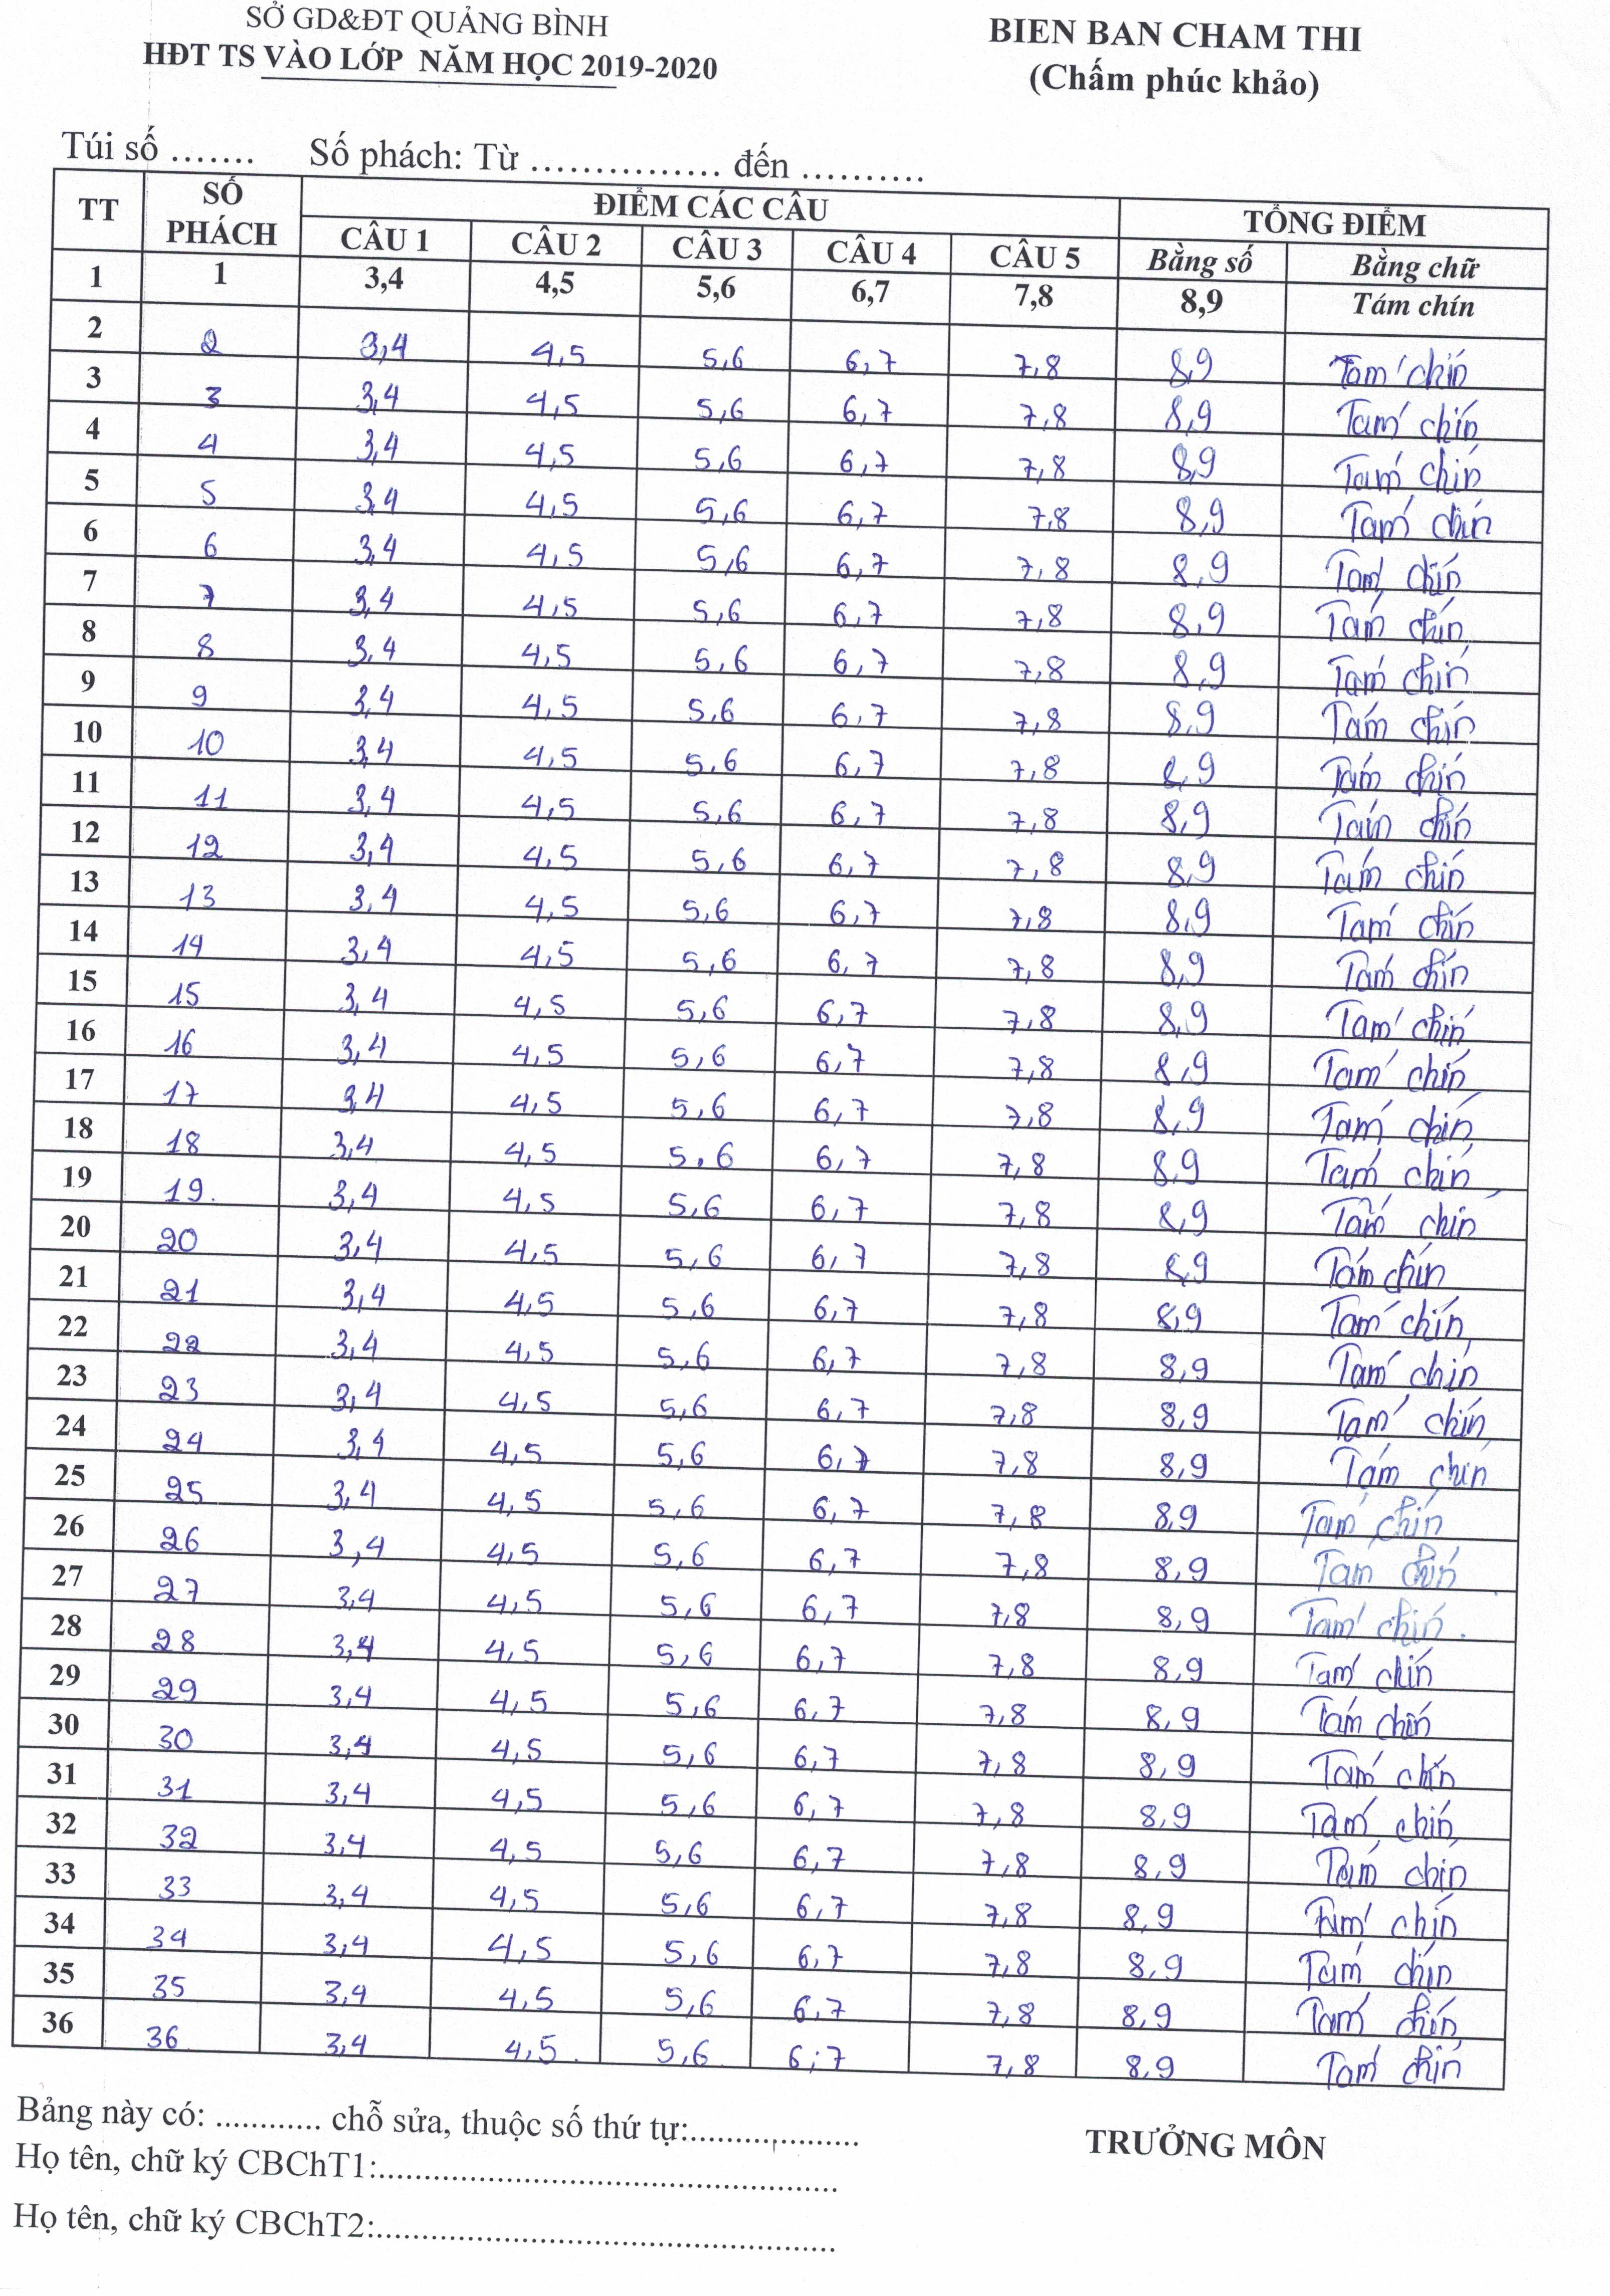 SỞ GD&ĐT QUẢNG BÌNH
HĐT TS VÀO LỚP NĂM HỌC 2019-2020
BIEN BAN CHAM THI
(Chấm phúc khảo)
Túi số ....... Số phách: Từ ................ đến ..........
TT SỐ PHÁCH ĐIỂM CÁC CÂU TỔNG ĐIỂM
CÂU 1 CÂU 2 CÂU 3 CÂU 4 CÂU 5 Bằng số Bằng chữ
1 1 3,4 4,5 5,6 6,7 7,8 8,9 Tám chín
2 2 3,4 4,5 5,6 6,7 7,8 8,9 Tám chín
3 3 3,4 4,5 5,6 6,7 7,8 8,9 Tám chín
4 4 3,4 4,5 5,6 6,7 7,8 8,9 Tám chín
5 5 3,4 4,5 5,6 6,7 7,8 8,9 Tám chín
6 6 3,4 4,5 5,6 6,7 7,8 8,9 Tám chín
7 7 3,4 4,5 5,6 6,7 7,8 8,9 Tám chín
8 8 3,4 4,5 5,6 6,7 7,8 8,9 Tám chín
9 9 3,4 4,5 5,6 6,7 7,8 8,9 Tám chín
10 10 3,4 4,5 5,6 6,7 7,8 8,9 Tám chín
11 11 3,4 4,5 5,6 6,7 7,8 8,9 Tám chín
12 12 3,4 4,5 5,6 6,7 7,8 8,9 Tám chín
13 13 3,4 4,5 5,6 6,7 7,8 8,9 Tám chín
14 14 3,4 4,5 5,6 6,7 7,8 8,9 Tám chín
15 15 3,4 4,5 5,6 6,7 7,8 8,9 Tám chín
16 16 3,4 4,5 5,6 6,7 7,8 8,9 Tám chín
17 17 3,4 4,5 5,6 6,7 7,8 8,9 Tám chín
18 18 3,4 4,5 5,6 6,7 7,8 8,9 Tám chín
19 19. 3,4 4,5 5,6 6,7 7,8 8,9 Tám chín
20 20 3,4 4,5 5,6 6,7 7,8 8,9 Tám chín
21 21 3,4 4,5 5,6 6,7 7,8 8,9 Tám chín
22 22 3,4 4,5 5,6 6,7 7,8 8,9 Tám chín
23 23 3,4 4,5 5,6 6,7 7,8 8,9 Tám chín
24 24 3,4 4,5 5,6 6,7 7,8 8,9 Tám chín
25 25 3,4 4,5 5,6 6,7 7,8 8,9 Tám chín
26 26 3,4 4,5 5,6 6,7 7,8 8,9 Tám chín
27 27 3,4 4,5 5,6 6,7 7,8 8,9 Tám chín.
28 28 3,4 4,5 5,6 6,7 7,8 8,9 Tám chín
29 29 3,4 4,5 5,6 6,7 7,8 8,9 Tám chín
30 30 3,4 4,5 5,6 6,7 7,8 8,9 Tám chín
31 31 3,4 4,5 5,6 6,7 7,8 8,9 Tám chín
32 32 3,4 4,5 5,6 6,7 7,8 8,9 Tám chín
33 33 3,4 4,5 5,6 6,7 7,8 8,9 Tám chín
34 34 3,4 4,5 5,6 6,7 7,8 8,9 Tám chín
35 35 3,4 4,5 5,6 6,7 7,8 8,9 Tám chín
36 36 3,4 4,5 5,6 6,7 7,8 8,9 Tám chín
Bảng này có: ............ chỗ sửa, thuộc số thứ tự:...................
TRƯỞNG MÔN
Họ tên, chữ ký CBChT1:..................................................
Họ tên, chữ ký CBChT2:..................................................